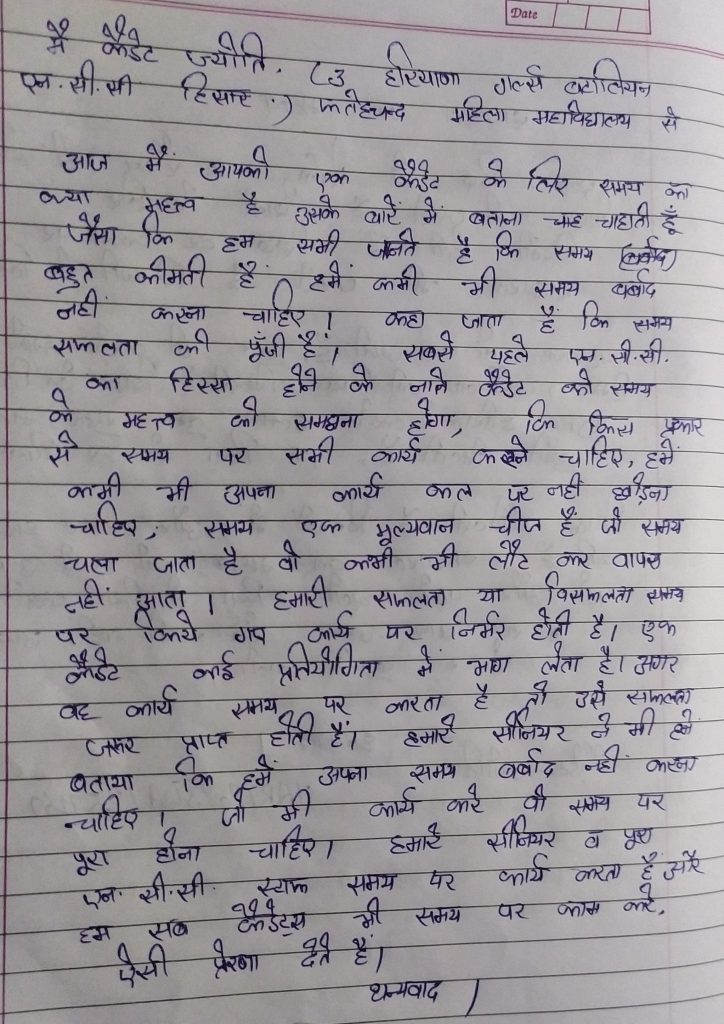 Date
मै कैडेट ज्योति, (3 हरियाणा गर्ल्स बटालियन
एन.सी.सी हिसार.) फतेहचन्द महिला महाविद्यालय से
आज मैं आपको एक कैडेट के लिए समय का
क्या महत्त्व है उसके बारें में बताना चाह चाहाती हूँ
जैसा कि हम सभी जानते है कि समय (बर्बाद)
बहुत कीमती है हमें कभी भी समय बर्बाद
नहीं करना चाहिए। कहा जाता हैं कि समय
सफलता की पूँजी हैं। सबसे पहले एन.सी.सी.
का हिस्सा होने के नाते कैडेट को समय
के महत्त्व को समझना होगा, कि किस प्रकार
से समय पर सभी कार्य करने चाहिए, हमें
कभी भी अपना कार्य कल पर नहीं छोड़ना
चाहिए, समय एक मूल्यवान चीज हैं जो समय
चला जाता है वो कभी भी लौट कर वापस
नहीं आता। हमारी सफलता या विसफलता समय
पर किये गए कार्य पर निर्भर होती है। एक
कैडेट कई प्रतियोगिता में भाग लेता है। अगर
वह कार्य समय पर करता है तो उसे सफलता
जरूर प्राप्त होती हैं। हमारे सीनियर ने भी हमें
बताया कि हमें अपना समय बर्बाद नहीं करना
चाहिए। जो भी कार्य करे वो समय पर
पूरा होना चाहिए। हमारे सीनियर व पूरा
एन.सी.सी. स्टाफ समय पर कार्य करता हैं और
हम सब कैडेट्स भी समय पर काम करे,
ऐसी प्रेरणा देते हैं।
धन्यवाद।